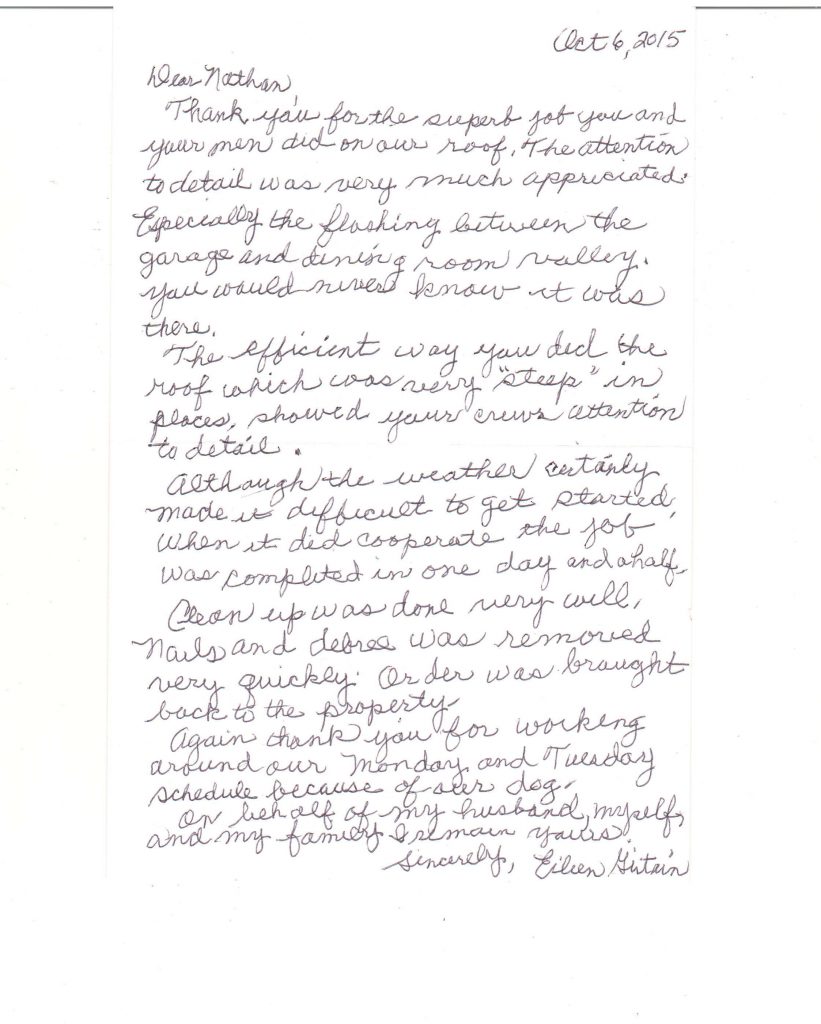 Oct 6, 2015
Dear Nathan,
Thank you for the superb job you and
your men did on our roof. The attention
to detail was very much appriciated.
Especially the flashing between the
garage and dining room valley.
you would never know it was
there.
The efficient way you did the
roof which was very "steep" in
places, showed your crews attention
to detail.
Although the weather certainly
made it difficult to get started,
when it did cooperate the job
was completed in one day and a half.
Clean up was done very well,
Nails and debree was removed
very quickly. Order was braught
back to the property.
Again thank you for working
around our Monday and Tuesday
schedule because of our dog.
On behalf of my husband, myself,
and my family I remain yours.
Sincerely, Eileen